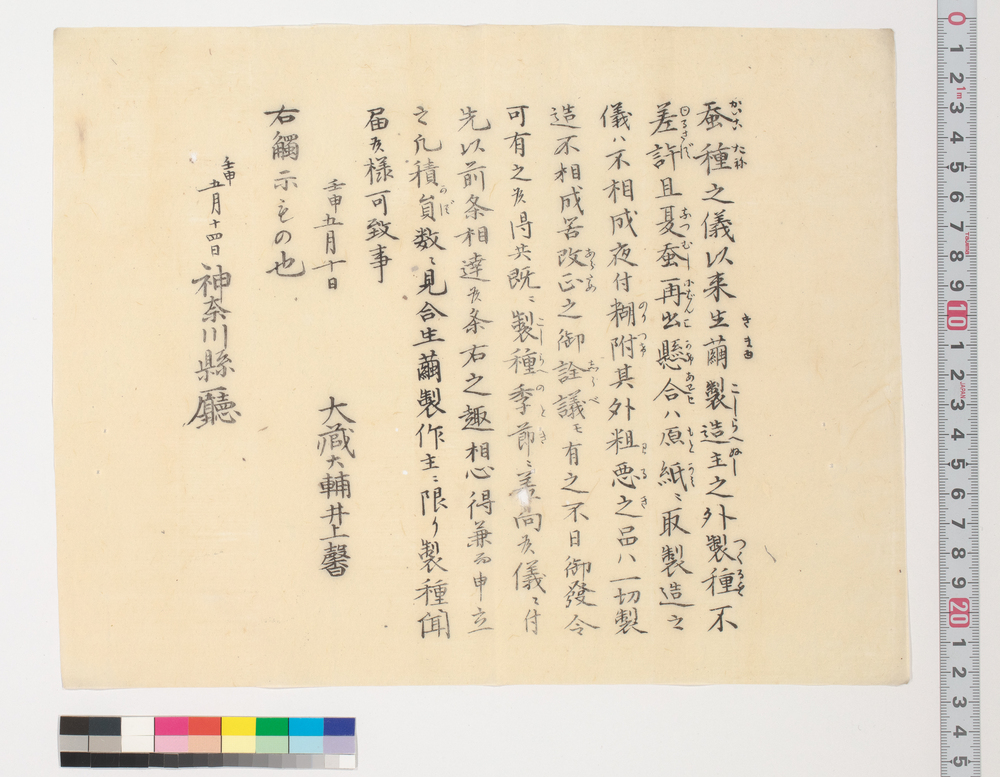 蚕種之儀以来生繭製造主之外製種不
差許且夏蚕再出懸合ハ原紙ニ取製造之
儀ハ不相成夜付糊附其外粗悪之品ハ一切製
造不相成旨改正之御詮議モ有之不日御發令
可有之候得共既ニ製種季節ニ差向候儀ニ付
先以前条相達候条右之趣相心得兼而申立
之凡積員数ニ見合生繭製作主ニ限り製種聞
届候様可致事
壬申五月十日
大藏大輔井上馨
右觸示もの也
壬申
五月十四日
神奈川縣廳